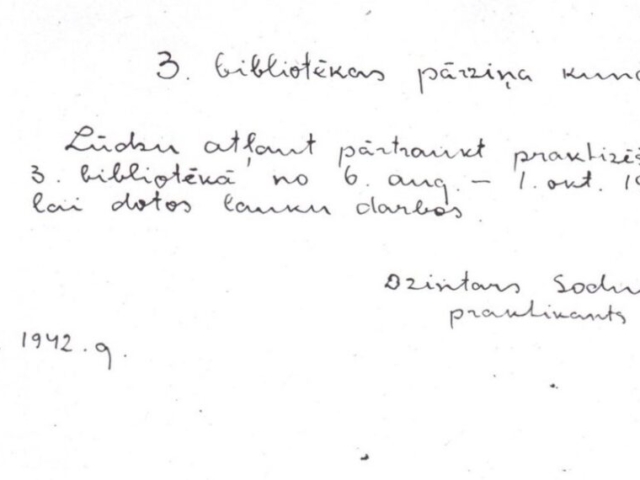 3. bibliotēkas pārziņa kund
Lūdzu atļaut pārtraukt praktizēš
3. bibliotēkā no 6. aug. – 1. okt. 19
lai dotos lauku darbos.
Dzintars Sodu
praktikants
1942. g.